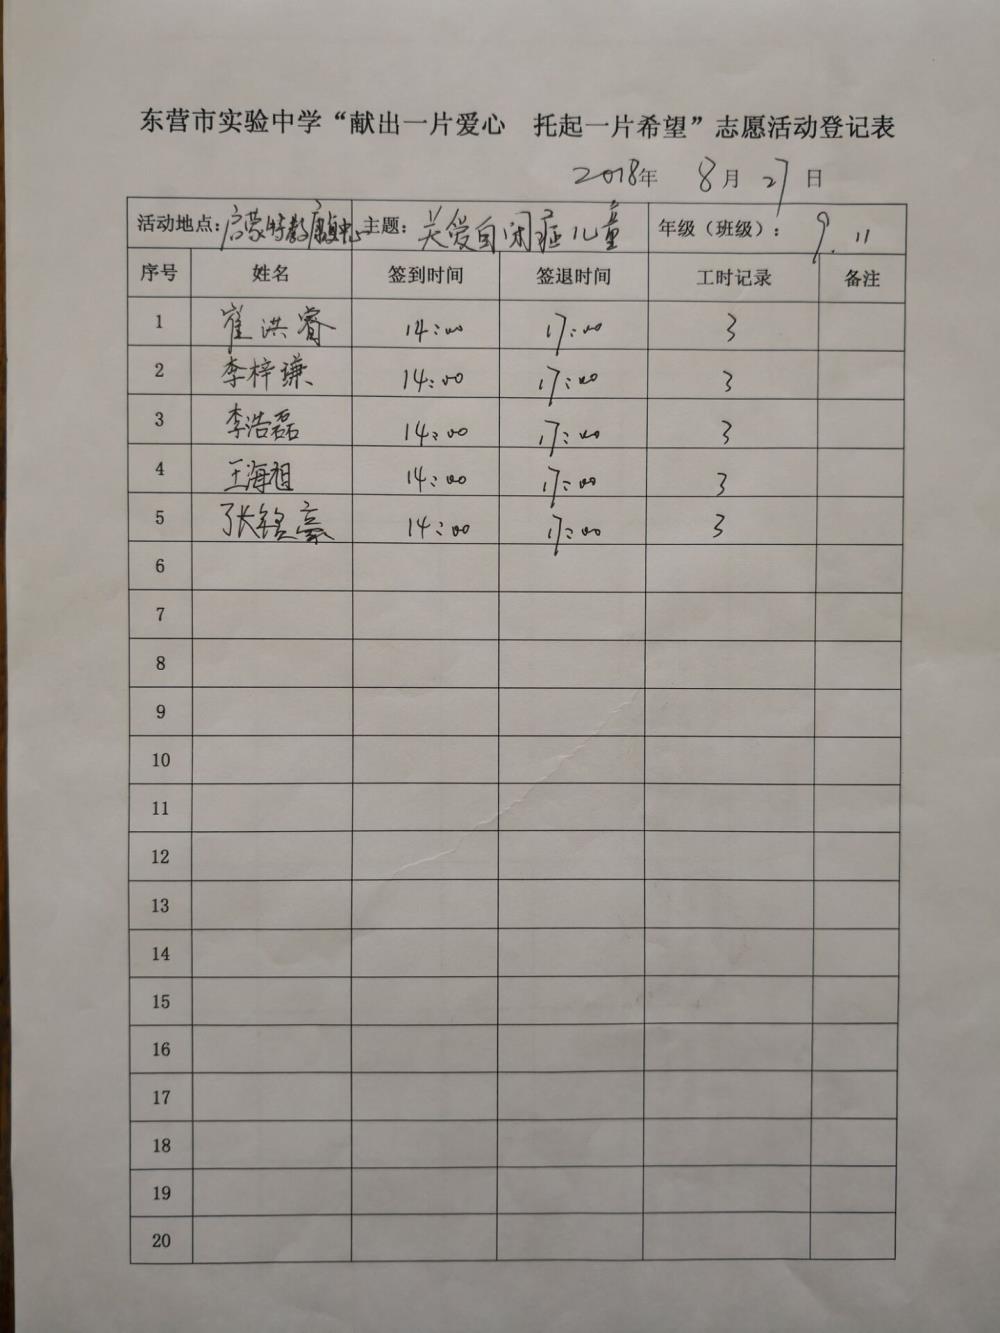 东营市实验中学“献出一片爱心 托起一片希望”志愿活动登记表
2018年 8月 27日
活动地点：启蒙特教康复中心 主题：关爱自闭症儿童 年级（班级）：9.11
序号 姓名 签到时间 签退时间 工时记录 备注
1 崔洪睿 14:00 17:00 3
2 李梓谦 14:00 17:00 3
3 李浩磊 14:00 17:00 3
4 王海祖 14:00 17:00 3
5 张铭豪 14:00 17:00 3
6
7
8
9
10
11
12
13
14
15
16
17
18
19
20